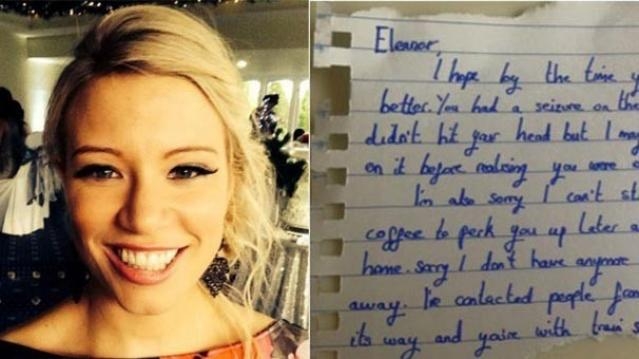 Eleanor,
I hope by the time
better. You had a seizure on
didn't hit your head but I
on it before realising you were
I'm also sorry I can't
coffee to perk you up later
home. Sorry I don't have anymore
away. I've contacted people
its way and you're with train